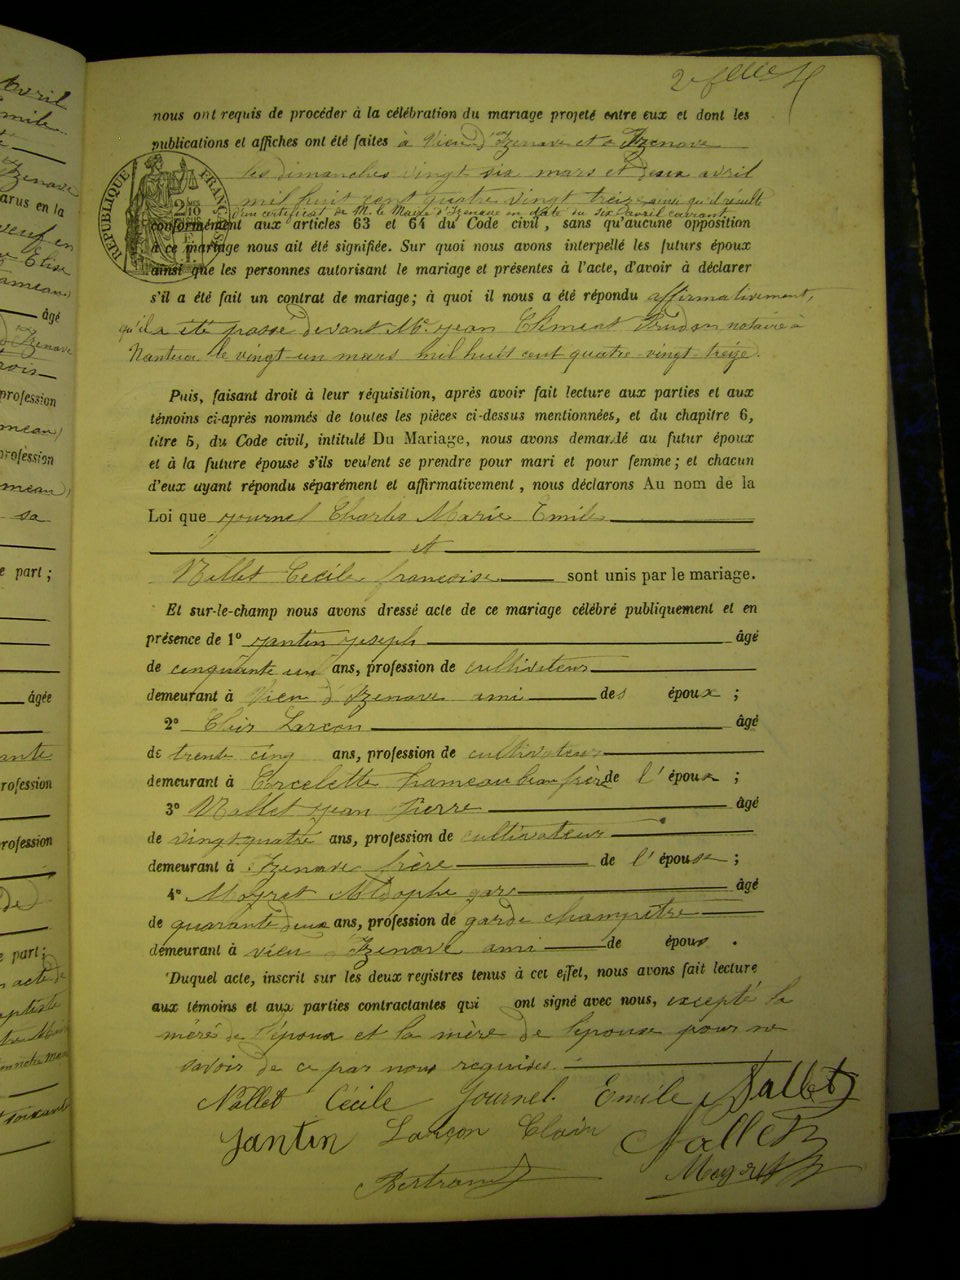 2e feuillet
nous ont requis de procéder à la célébration du mariage projeté entre eux et dont les
publications et affiches ont été faites à Vieu d'Izenave et à Izenave
les dimanches vingt six mars et deux avril
mil huit cent quatre vingt treize ainsi qu'il résulte
d'un certificat de M. le Maire d'Izenave en date du six avril courant
conformément aux articles 63 et 64 du Code civil, sans qu'aucune opposition
à ce mariage nous ait été signifiée. Sur quoi nous avons interpellé les futurs époux
ainsi que les personnes autorisant le mariage et présentes à l'acte, d'avoir à déclarer
s'il a été fait un contrat de mariage; à quoi il nous a été répondu affirmativement,
qu'il a été passé devant Me. jean Clément notaire à
Nantua le vingt-un mars mil huit cent quatre-vingt-treize.
Puis, faisant droit à leur réquisition, après avoir fait lecture aux parties et aux
témoins ci-après nommés de toutes les pièces ci-dessus mentionnées, et du chapitre 6,
titre 5, du Code civil, intitulé Du Mariage, nous avons demandé au futur époux
et à la future épouse s'ils veulent se prendre pour mari et pour femme; et chacun
d'eux ayant répondu séparément et affirmativement, nous déclarons Au nom de la
Loi que journel Charles Marie Emile
et
Nallet Cécile françoise sont unis par le mariage.
Et sur-le-champ nous avons dressé acte de ce mariage célébré publiquement et en
présence de 1º jantin joseph âgé
de cinquante un ans, profession de cultivateur
demeurant à Vieu d'Izenave ami des époux ;
2º Clair Larçon âgé
de trente cinq ans, profession de cultivateur
demeurant à Corcelette hameau beau frère de l'époux ;
3º Nallet jean Pierre âgé
de vingt quatre ans, profession de cultivateur
demeurant à Izenave frère de l'épouse ;
4º Meyret âgé
de quarante deux ans, profession de garde champêtre
demeurant à vieu d'Izenave ami de époux .
Duquel acte, inscrit sur les deux registres tenus à cet effet, nous avons fait lecture
aux témoins et aux parties contractantes qui ont signé avec nous, excepté la
mère de l'époux et la mère de l'épouse pour ne
savoir de ce par nous requises.
Nallet Cécile Journel Emile Nallet
Jantin Larçon Clair Nallet
Bertrand Meyret
RÉPUBLIQUE FRANÇAISE